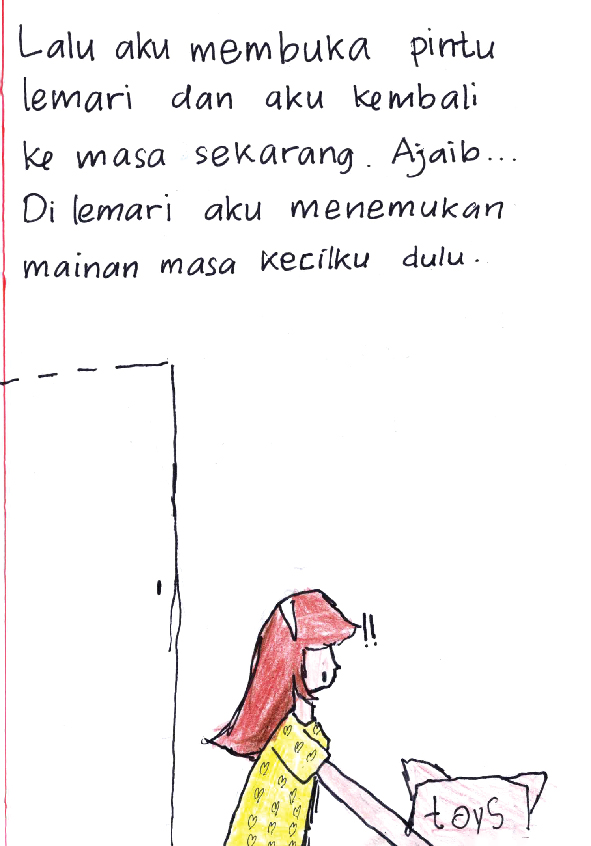 Lalu aku membuka pintu
lemari dan aku kembali
ke masa sekarang. Ajaib...
Di lemari aku menemukan
mainan masa kecilku dulu.
!!
toys